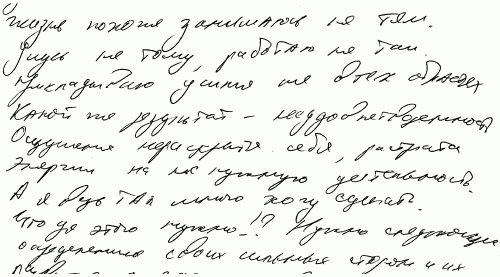 жизнь похоже занимаюсь не тем.
Учусь не тому, работаю не там.
Прикладываю усилия не в тех областях
Какой же результат – неудовлетворенность
Ощущение нераскрытия себя, растрата
энергии на не нужную деятельность.
А я ведь так много хочу сделать.
Что для этого нужно!? Нужно следующее
определению своих сильных сторон и их